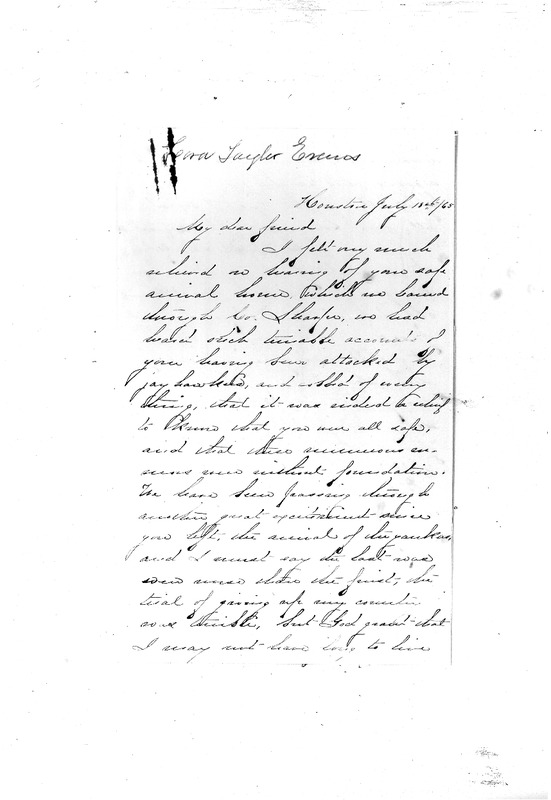 Taylor Evans
Houston July 18th/65
My dear friend
I felt very much
relieved on hearing of your safe
arrival home, which we learned
through Co. Sharpe, we had
heard such terrible accounts of
your having been attacked by
jay hawkers, and robbed of every
thing, that it was indeed a relief
to know that you were all safe,
and that these numerous ru-
mors were without foundation.
We have been passing through
another great excitement since
you left, the arrival of the yankees,
and I must say the last was
even worse than the first, the
trial of giving up my country
was terrible, but God grant that
I may not have long to live